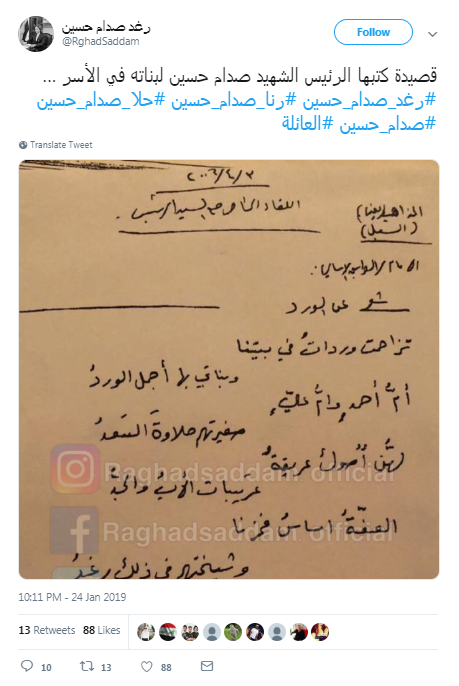 رغد صدام حسين
@RghadSaddam
Follow
قصيدة كتبها الرئيس الشهيد صدام حسين لبناته في الأسر ...
#رغد_صدام_حسين #رنا_صدام_حسين #حلا_صدام_حسين
#صدام_حسين #العائلة
Translate Tweet
اللقاء
شعر عن الورد
تزاحمت وردات في بيتنا
وبناتي لها أجمل الورد
أم أحمد وأم علي
صغيرتهم حلاوة السعد
لهن أصول عريقة
عريبات الأب والجد
العفة أساس فخرنا
وشيختهم في ذلك رغد
Raghadsaddam official
Raghadsaddam official
10:11 PM - 24 Jan 2019
13 Retweets 88 Likes
10 13 88